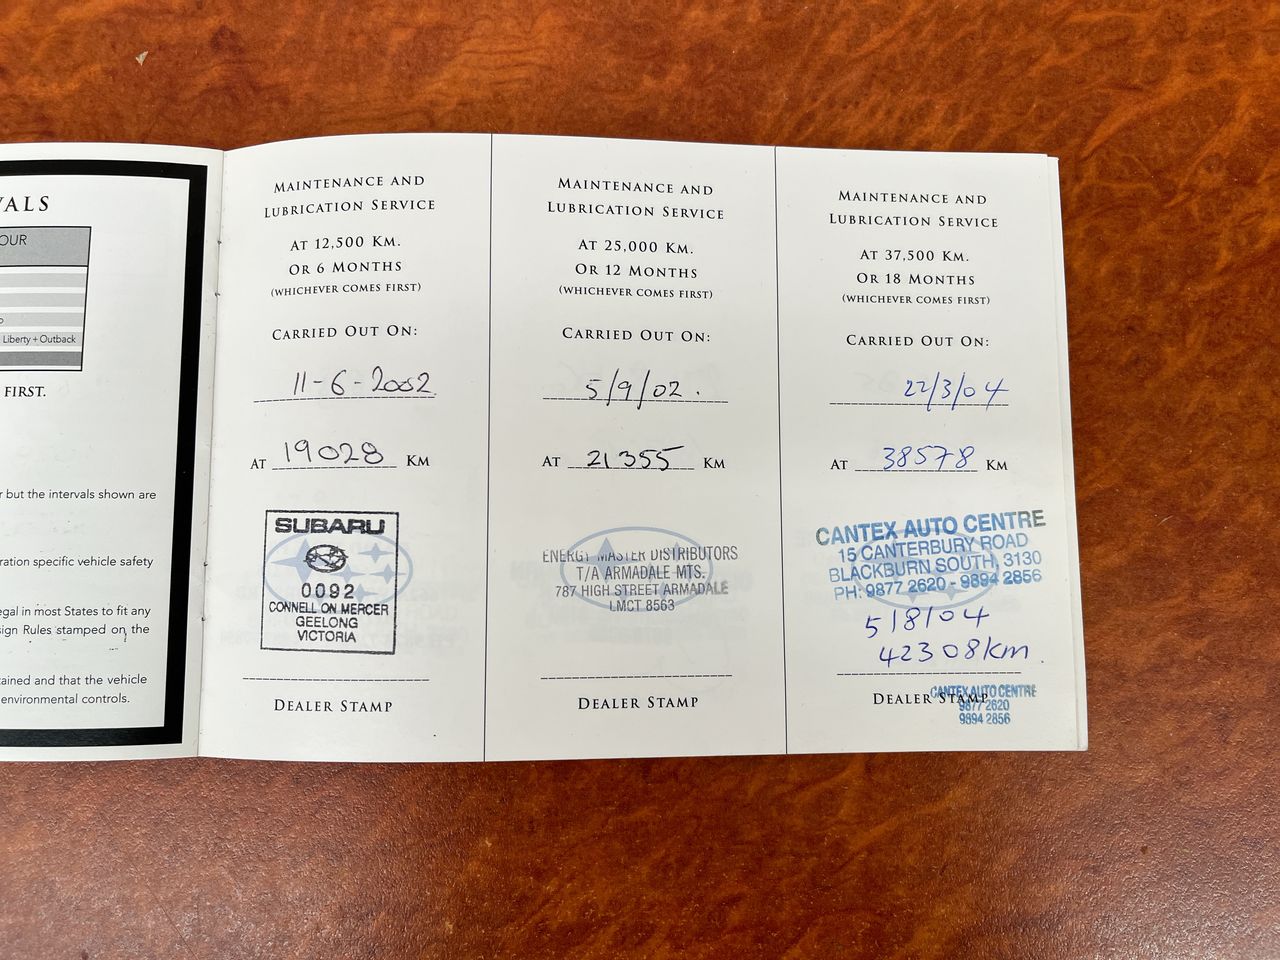 VALS
OUR
Liberty + Outback
FIRST.
but the intervals shown are
specific vehicle safety
in most States to fit any
Rules stamped on the
and that the vehicle
environmental controls.
MAINTENANCE AND
LUBRICATION SERVICE
AT 12,500 KM.
OR 6 MONTHS
(WHICHEVER COMES FIRST)
CARRIED OUT ON:
11-6-2002
AT 19028 KM
SUBARU
0092
CONNELL ON MERCER
GEELONG
VICTORIA
DEALER STAMP
MAINTENANCE AND
LUBRICATION SERVICE
AT 25,000 KM.
OR 12 MONTHS
(WHICHEVER COMES FIRST)
CARRIED OUT ON:
5/9/02.
AT 21355 KM
ENERGY MASTER DISTRIBUTORS
T/A ARMADALE MTS.
787 HIGH STREET ARMADALE
LMCT 8563
DEALER STAMP
MAINTENANCE AND
LUBRICATION SERVICE
AT 37,500 KM.
OR 18 MONTHS
(WHICHEVER COMES FIRST)
CARRIED OUT ON:
22/3/04
AT 38578 KM
CANTEX AUTO CENTRE
15 CANTERBURY ROAD
BLACKBURN SOUTH, 3130
PH: 9877 2620 - 9894 2856
5/8/04
42308km.
DEALER STAMP
CANTEX AUTO CENTRE
9877 2620
9894 2856